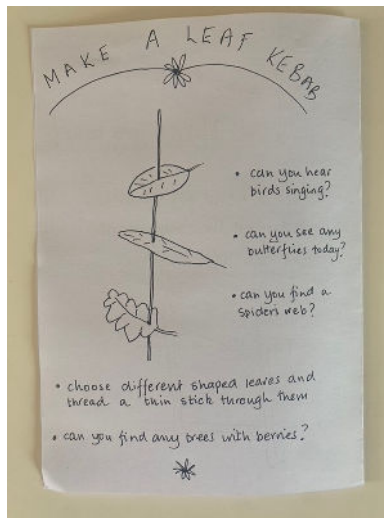 MAKE A LEAF KEBAB
• can you hear
birds singing?
• can you see any
butterflies today?
• can you find a
spiders web?
• choose different shaped leaves and
thread a thin stick through them
• can you find any trees with berries?